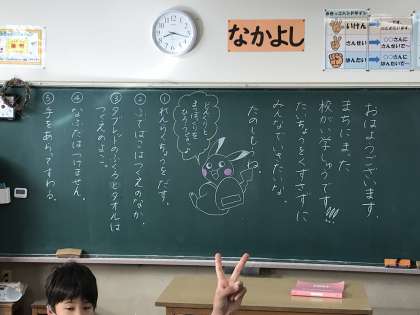 なかよし
いけん
さんせい
はんたい
○○さんに
○○さんに
おはようございます。
まちにまた
校がい学しゅうです!!!
たいちょうをくずさずに
みんなでいきたいな。
たのしもうね。
①れんらくちょうをだす。
②ふでばこはつくえのなか。
③タブレットのふくろとタオルは
つくえのよこ。
④なふだはつけません。
⑤手をあらってすわる。